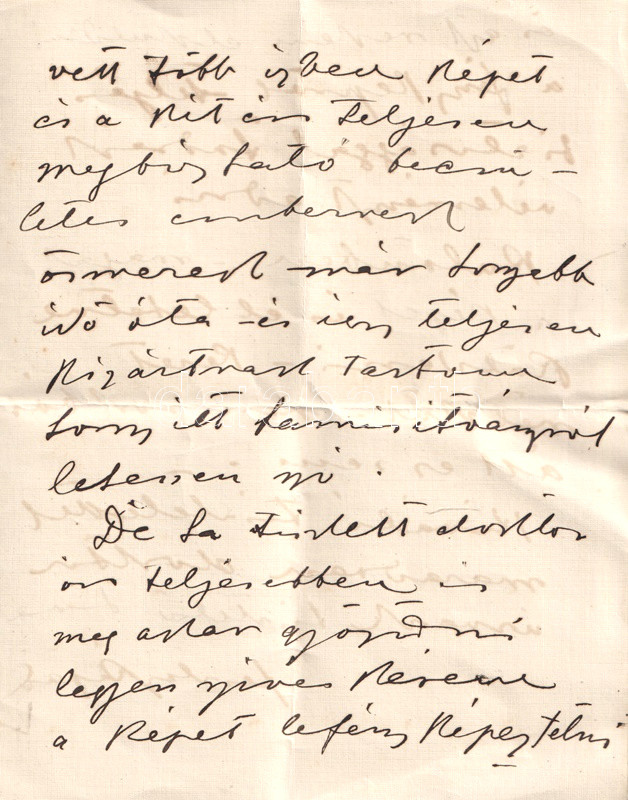 vett több izben képet
és a kit én teljesen
megbizható becsü-
letes embernek
ösmerek már hosszabb
idő óta és igy teljesen
kizártnak tartom
hogy itt hamisitványról
lehessen szó.
De ha tisztelt doktor
ur teljesebben is
meg akar győződni
legyen szives kérem
a képet lefényképeztetni